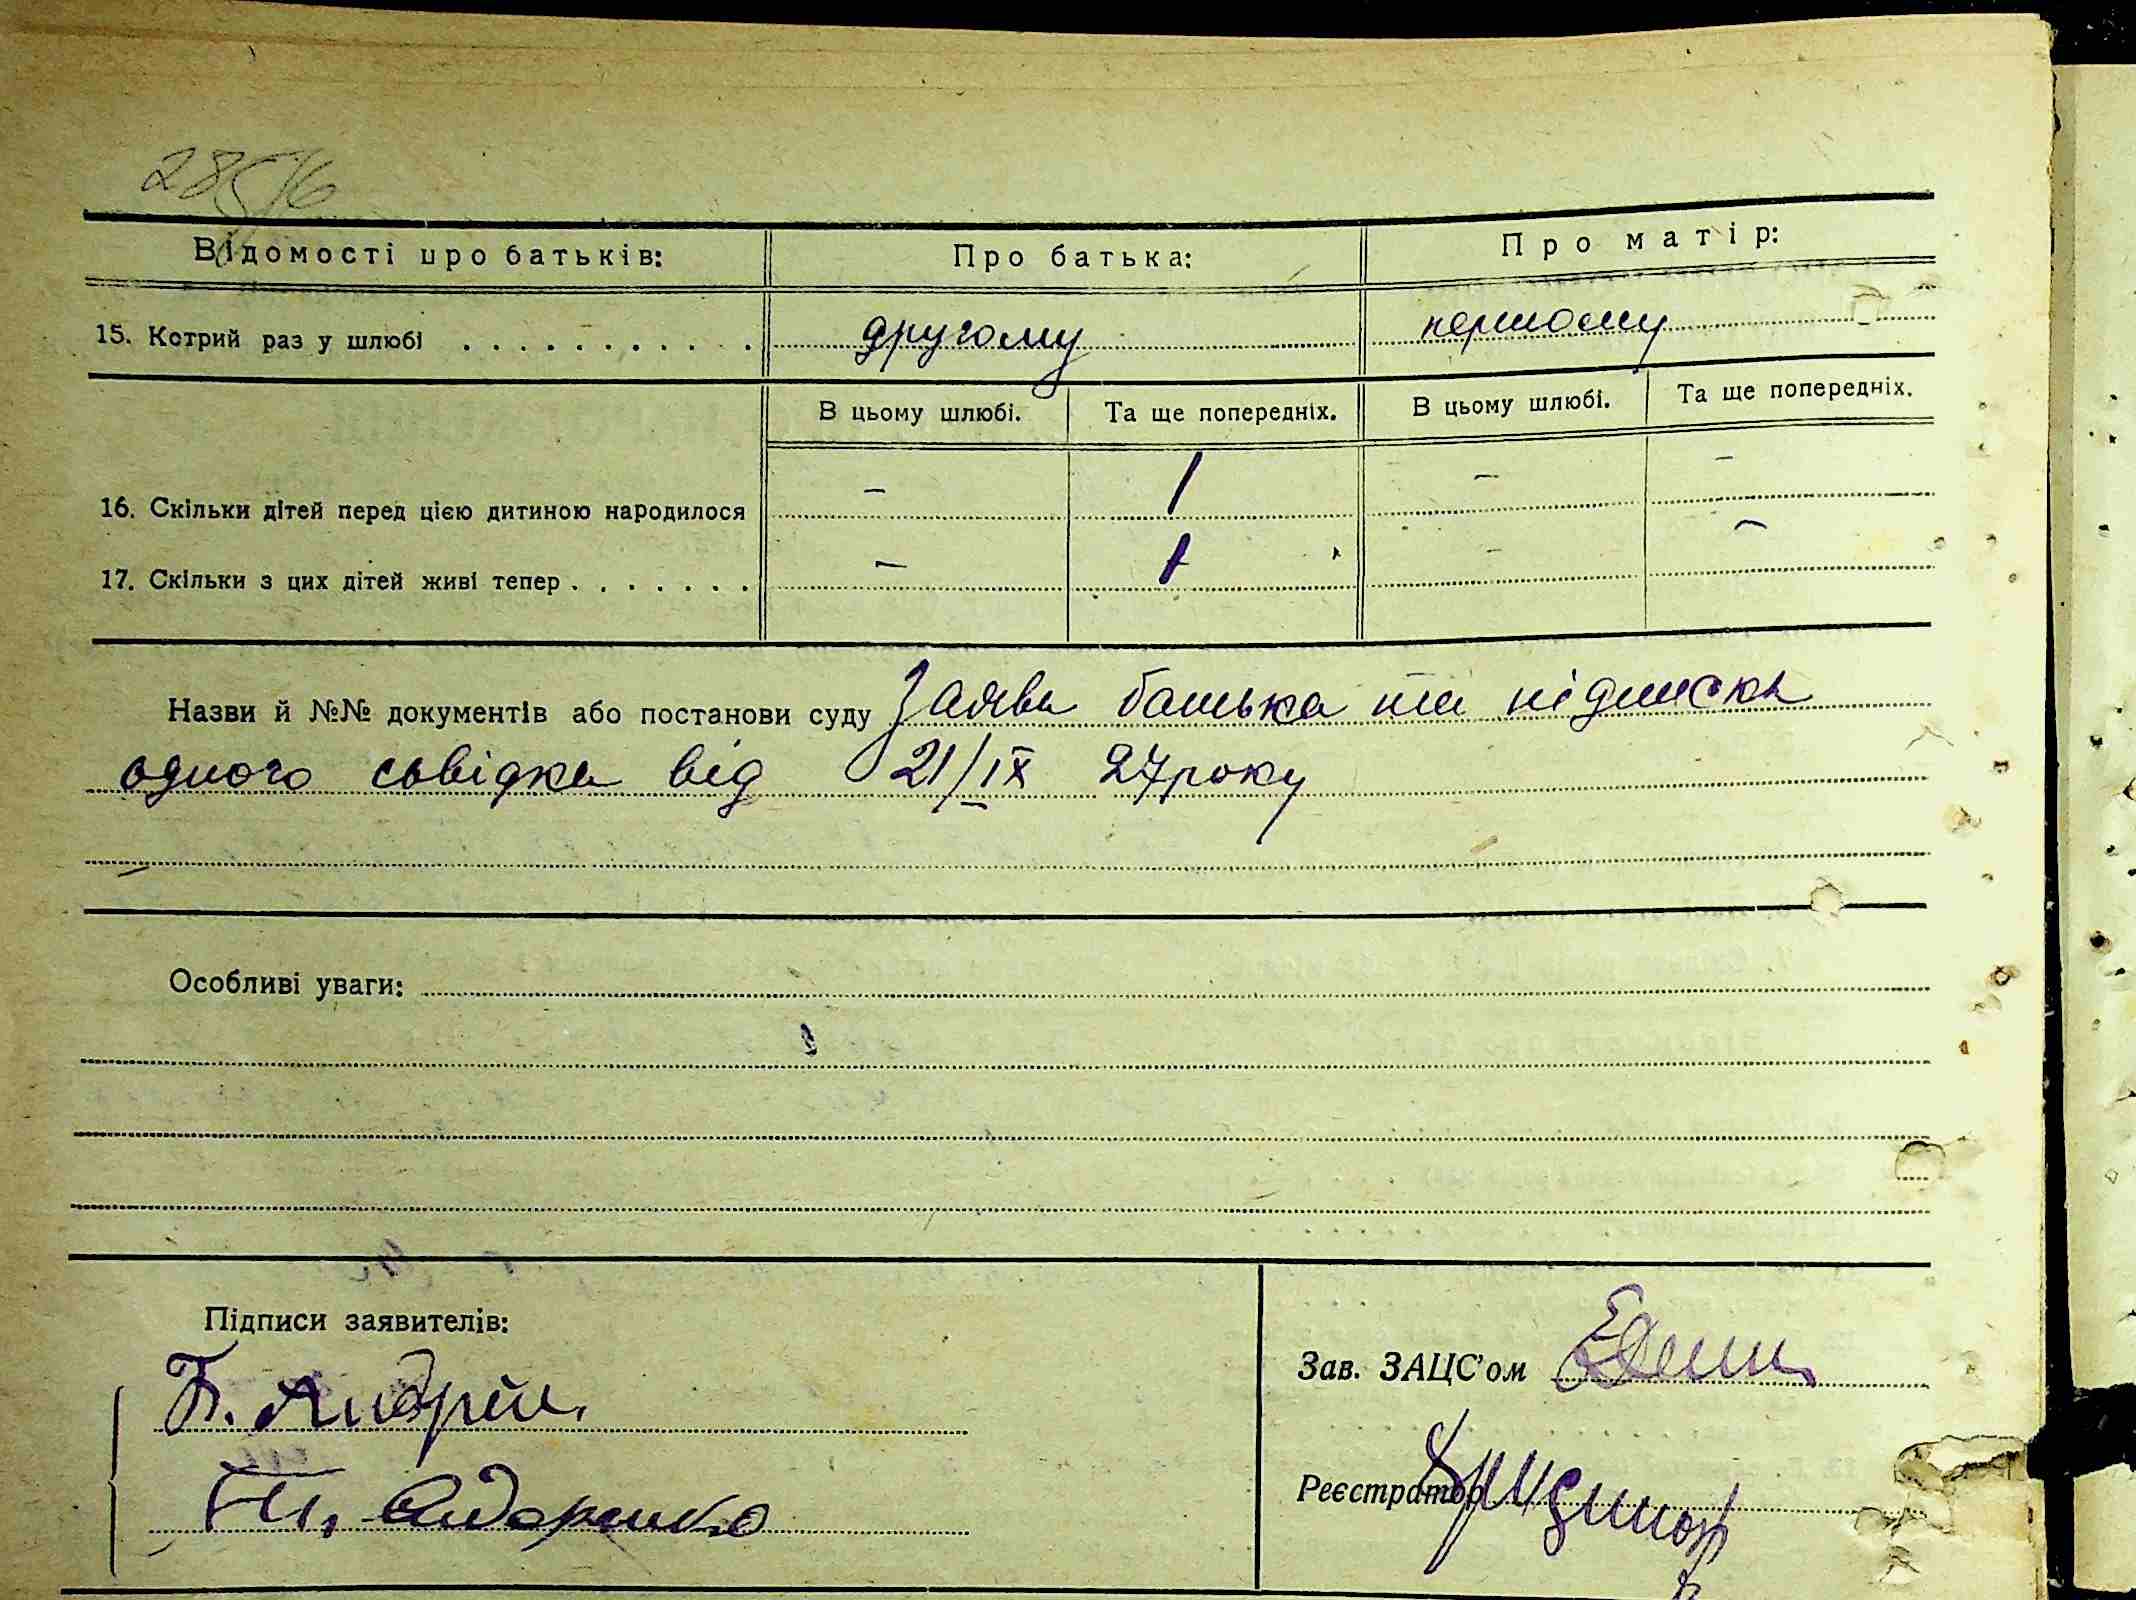 285/6
Відомості про батьків: Про батька: Про матір:
15. Котрий раз у шлюбі . . . . . . . . . . . другому першому
В цьому шлюбі. Та ще попередніх. В цьому шлюбі. Та ще попередніх.
16. Скільки дітей перед цією дитиною народилося – 1 – –
17. Скільки з цих дітей живі тепер . . . . . . . – 1 – –
Назви й №№ документів або постанови суду Заява батька та підписка
одного свідка від 21/IX 27 року
Особливі уваги:
Підписи заявителів:
Зав. ЗАЦС'ом
Б. Андрій.
Реєстратор